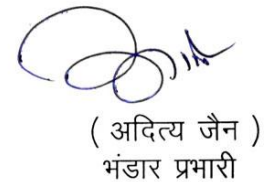 ( अदित्य जैन )
भंडार प्रभारी